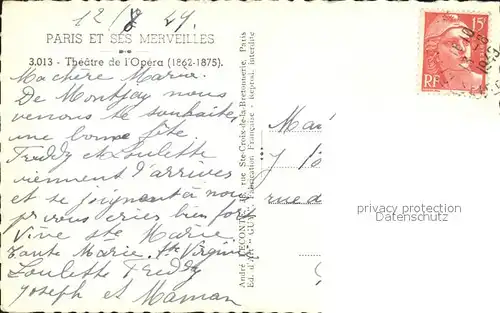 12/8 49.
PARIS ET SES MERVEILLES
3.013 - Théâtre de l'Opéra (1862-1875).
Ma chère Marie.
De Montjay nous
venons te souhaiter
une bonne fête.
Freddy et Loulette
viennent d'arriver
et se joignent à nous
pr vous crier bien fort
Vive Ste Marie
Tante Marie, Ste Virginie
Loulette Freddy
Joseph et Maman
André LECONTE, 38, rue Ste-Croix-de-la-Bretonnerie, Paris
Ed. d'Art "GUY" - Fabrication Française - Reprod. interdite
15F
RF
J Jo
rue d
privacy protection
Datenschutz